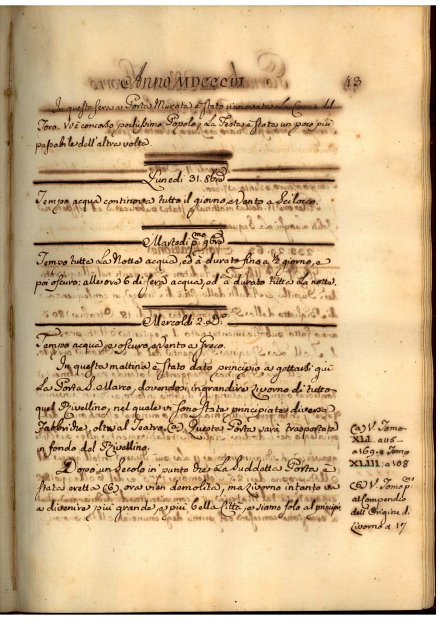 Anno MDCCCIII
43
In questa sera a Porta Murata è stato rinnovata La Caccia del
Toro. V'è concorso pochissimo Popolo, La Festa è stata un poco più
passabile dell'altre volte.
Lunedì 31. 8bre
Tempo acqua continova tutto il giorno, e Vento a Scilocco.
Martedì p.mo 9bre
Tempo tutta La Notte acqua, ed à durato fino a ½ giorno, e
poi oscuro: alle ore 6 di sera acqua, ed à durato tutta La notte.
Mercoldì 2. D.o
Tempo acqua, e oscuro, e Vento a Greco.
In questa mattina è stato dato principio a gettar giù
La Porta S. Marco, dovendosi ingrandire Livorno di tutto
quel Rivellino, nel quale vi sono state principiate diverse
Fabbriche, oltre al Teatro. (a) Questa Porta sarà trasportata
in fondo del Rivellino.
Dopo un Secolo in punto che La Suddetta Porta è
stata eretta (b), ora vien demolita, ma Livorno intanto va
a divenire più grande, e più bella Città, e siamo solo al principio
(a) V. Tomo
XLI. a 115
a 169. e Tomo
XLIII. a 108
(b) V. Tomo p.mo
al Compendio
dell'Origine di
Livorno a 17